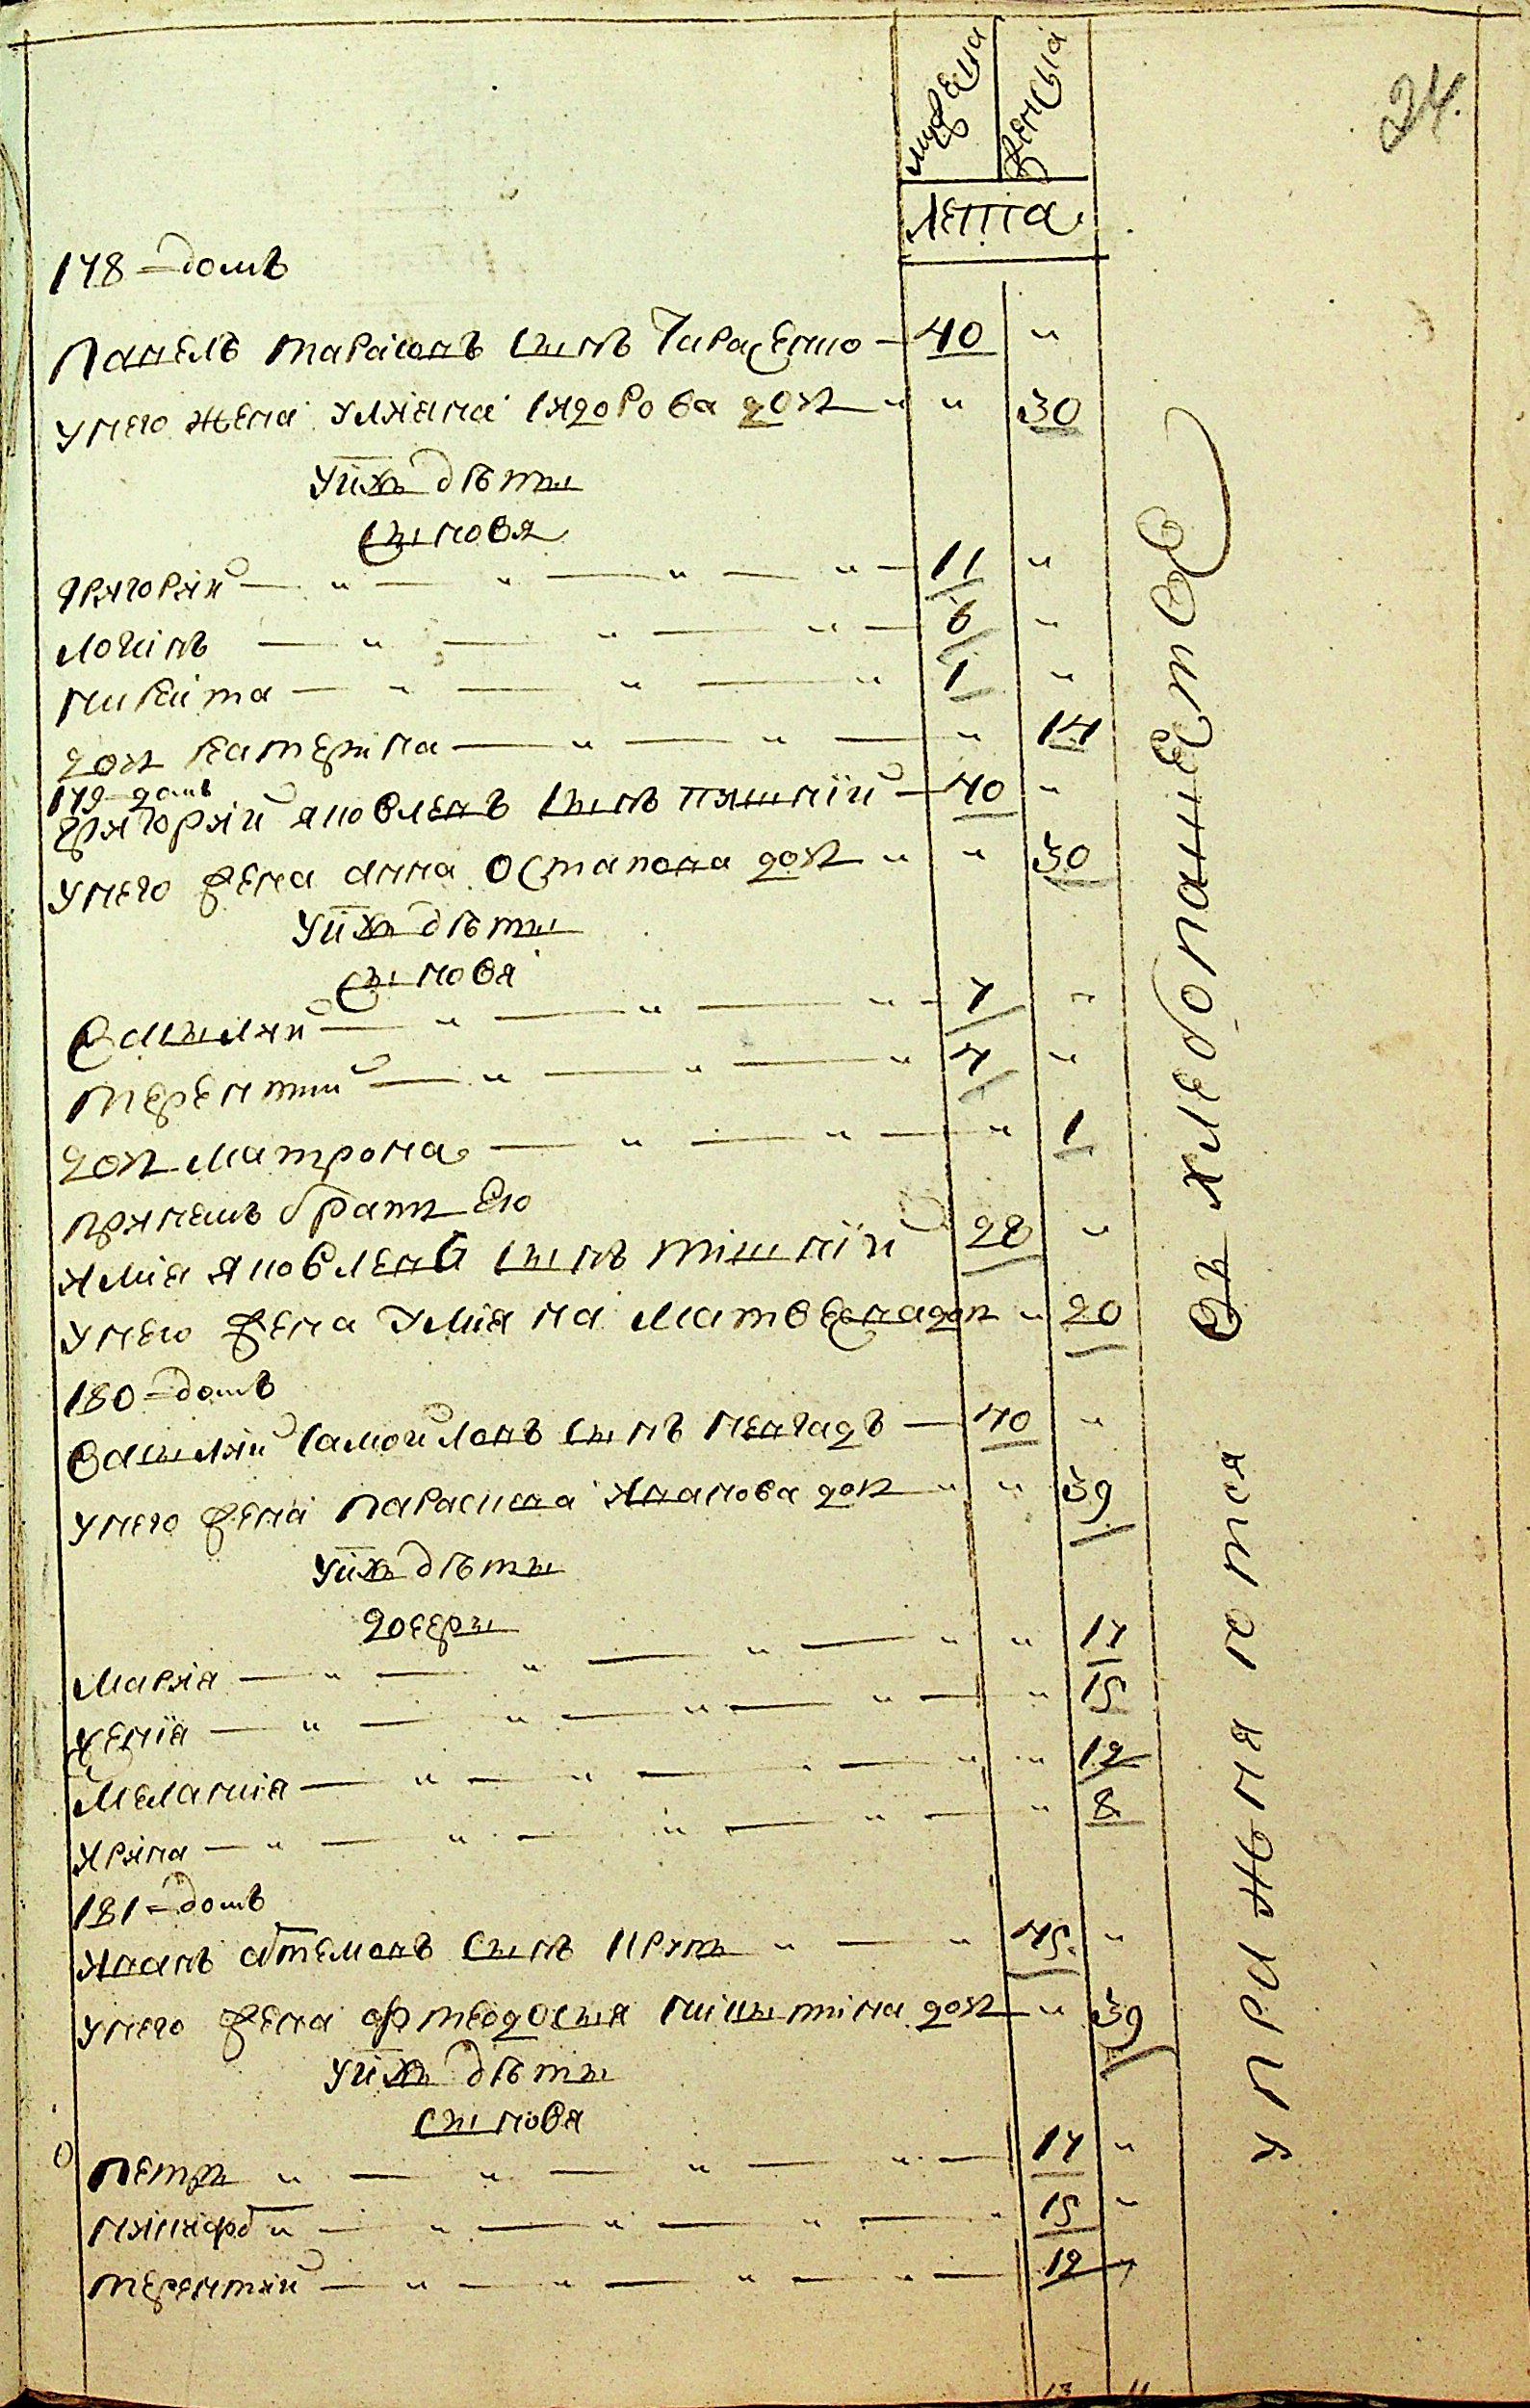 24.
мужеска женска
лѣта
178 домъ
Павелъ Тарасовъ сынъ Тарасенко — 40 "
у него жена Улияна Сидорова дочь " " 30
у ихъ дѣти
сыновя
Григорий — " — " — " — " — 11 "
Логинъ — " — " — " — 6 "
Никита — " — " — " 1 "
дочь Катерина — " — " — " 14
179 домъ
Григорий Яковлевъ сынъ Пишний — 40 "
у него жена Анна Остапова дочь " " 30
у ихъ дѣти
сыновя
Василий — " — " — " — 7 "
Терентий — " — " — " 4 "
дочь Матрона — " — " — " 1
при немъ братъ его
Илия Яковлевъ сынъ Пишний 28 "
у него жена Улияна Матвеева дочь " 20
180 домъ
Василий Самойловъ сынъ — 40 "
у него жена Параскева Иванова дочь " " 39
у ихъ дѣти
дочери
Мария — " — " — " — " " 17
Хения — " — " — " — " 15
Мелания — " — " — " " 12
Ирина — " — " — " — " — " 8
181 домъ
Иванъ Артемовъ сынъ " — " 45 "
у него жена Федосия Никитина дочь — " 39
у ихъ дѣти
сыновя
Петръ " — " — " — " — 17 "
Никифоръ " — " — " — " — " 15 "
Терентий — " — " — " — " — 12 "
13 11
упражняются въ хлебопашестве